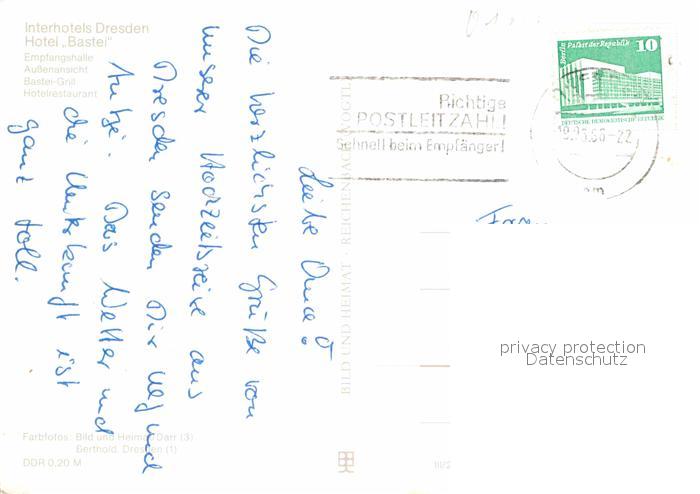 Interhotels Dresden
Hotel „Bastei“
Empfangshalle
Außenansicht
Bastei-Grill
Hotelrestaurant
Liebe Oma!
Die herzlichsten Grüße von
unserer Hochzeitsreise aus
Dresden senden Dir und
Antje. Das Wetter und
die Unterkunft ist
ganz toll.
Farbfotos: Bild und Heimat Darr (3)
Berthold, Dresden (1)
DDR 0,20 M
BILD UND HEIMAT · REICHENBACH (VOGTL
III/2
Richtige
POSTLEITZAHL!
Schnell beim Empfänger!
Berlin Palast der Republik 10
DEUTSCHE DEMOKRATISCHE REPUBLIK
-22
privacy protection
Datenschutz